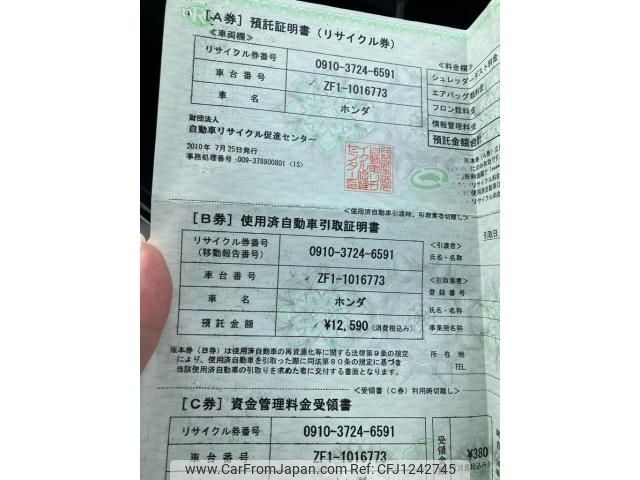 ［A券］預託証明書（リサイクル券）
≪車両欄≫
リサイクル券番号 0910-3724-6591
車台番号 ZF1-1016773
車名 ホンダ
≪料金欄≫
シュレッダーダスト料金
エアバッグ類料金
フロン類料金
情報管理料金
預託金額合計
財団法人
自動車リサイクル促進センター
2010年 7月25日発行
事務処理番号:009-378800801 (1S)
＜使用済自動車引渡時、引取業者切離し＞
［B券］使用済自動車引取証明書
引取日
リサイクル券番号
(移動報告番号) 0910-3724-6591
車台番号 ZF1-1016773
車名 ホンダ
預託金額 ¥12,590 (消費税込み)
＜引渡者＞
氏名・名称
＜引取業者＞
登録番号
氏名・名称
事業所名称
所在地
TEL
※本券（B券）は使用済自動車の再資源化等に関する法律第９条の規定
により、使用済自動車を引取った際に同法第８０条の規定に基づき
当該使用済自動車の引取りを求めた者に交付する書面となります。
＜受領書（C券）利用時切離し＞
［C券］資金管理料金受領書
リサイクル券番号 0910-3724-6591
車台番号 ZF1-1016773
受領金
¥380
(消費税込み)
www.CarFromJapan.com
© CarFromJapan - CFJ1242745